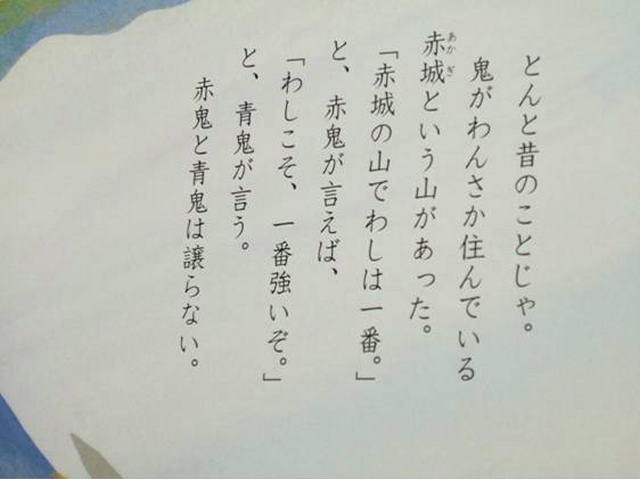 とんと昔のことじゃ。
鬼がわんさか住んでいる
赤城という山があった。
あかぎ
「赤城の山でわしは一番。」
と、赤鬼が言えば、
「わしこそ、一番強いぞ。」
と、青鬼が言う。
赤鬼と青鬼は譲らない。